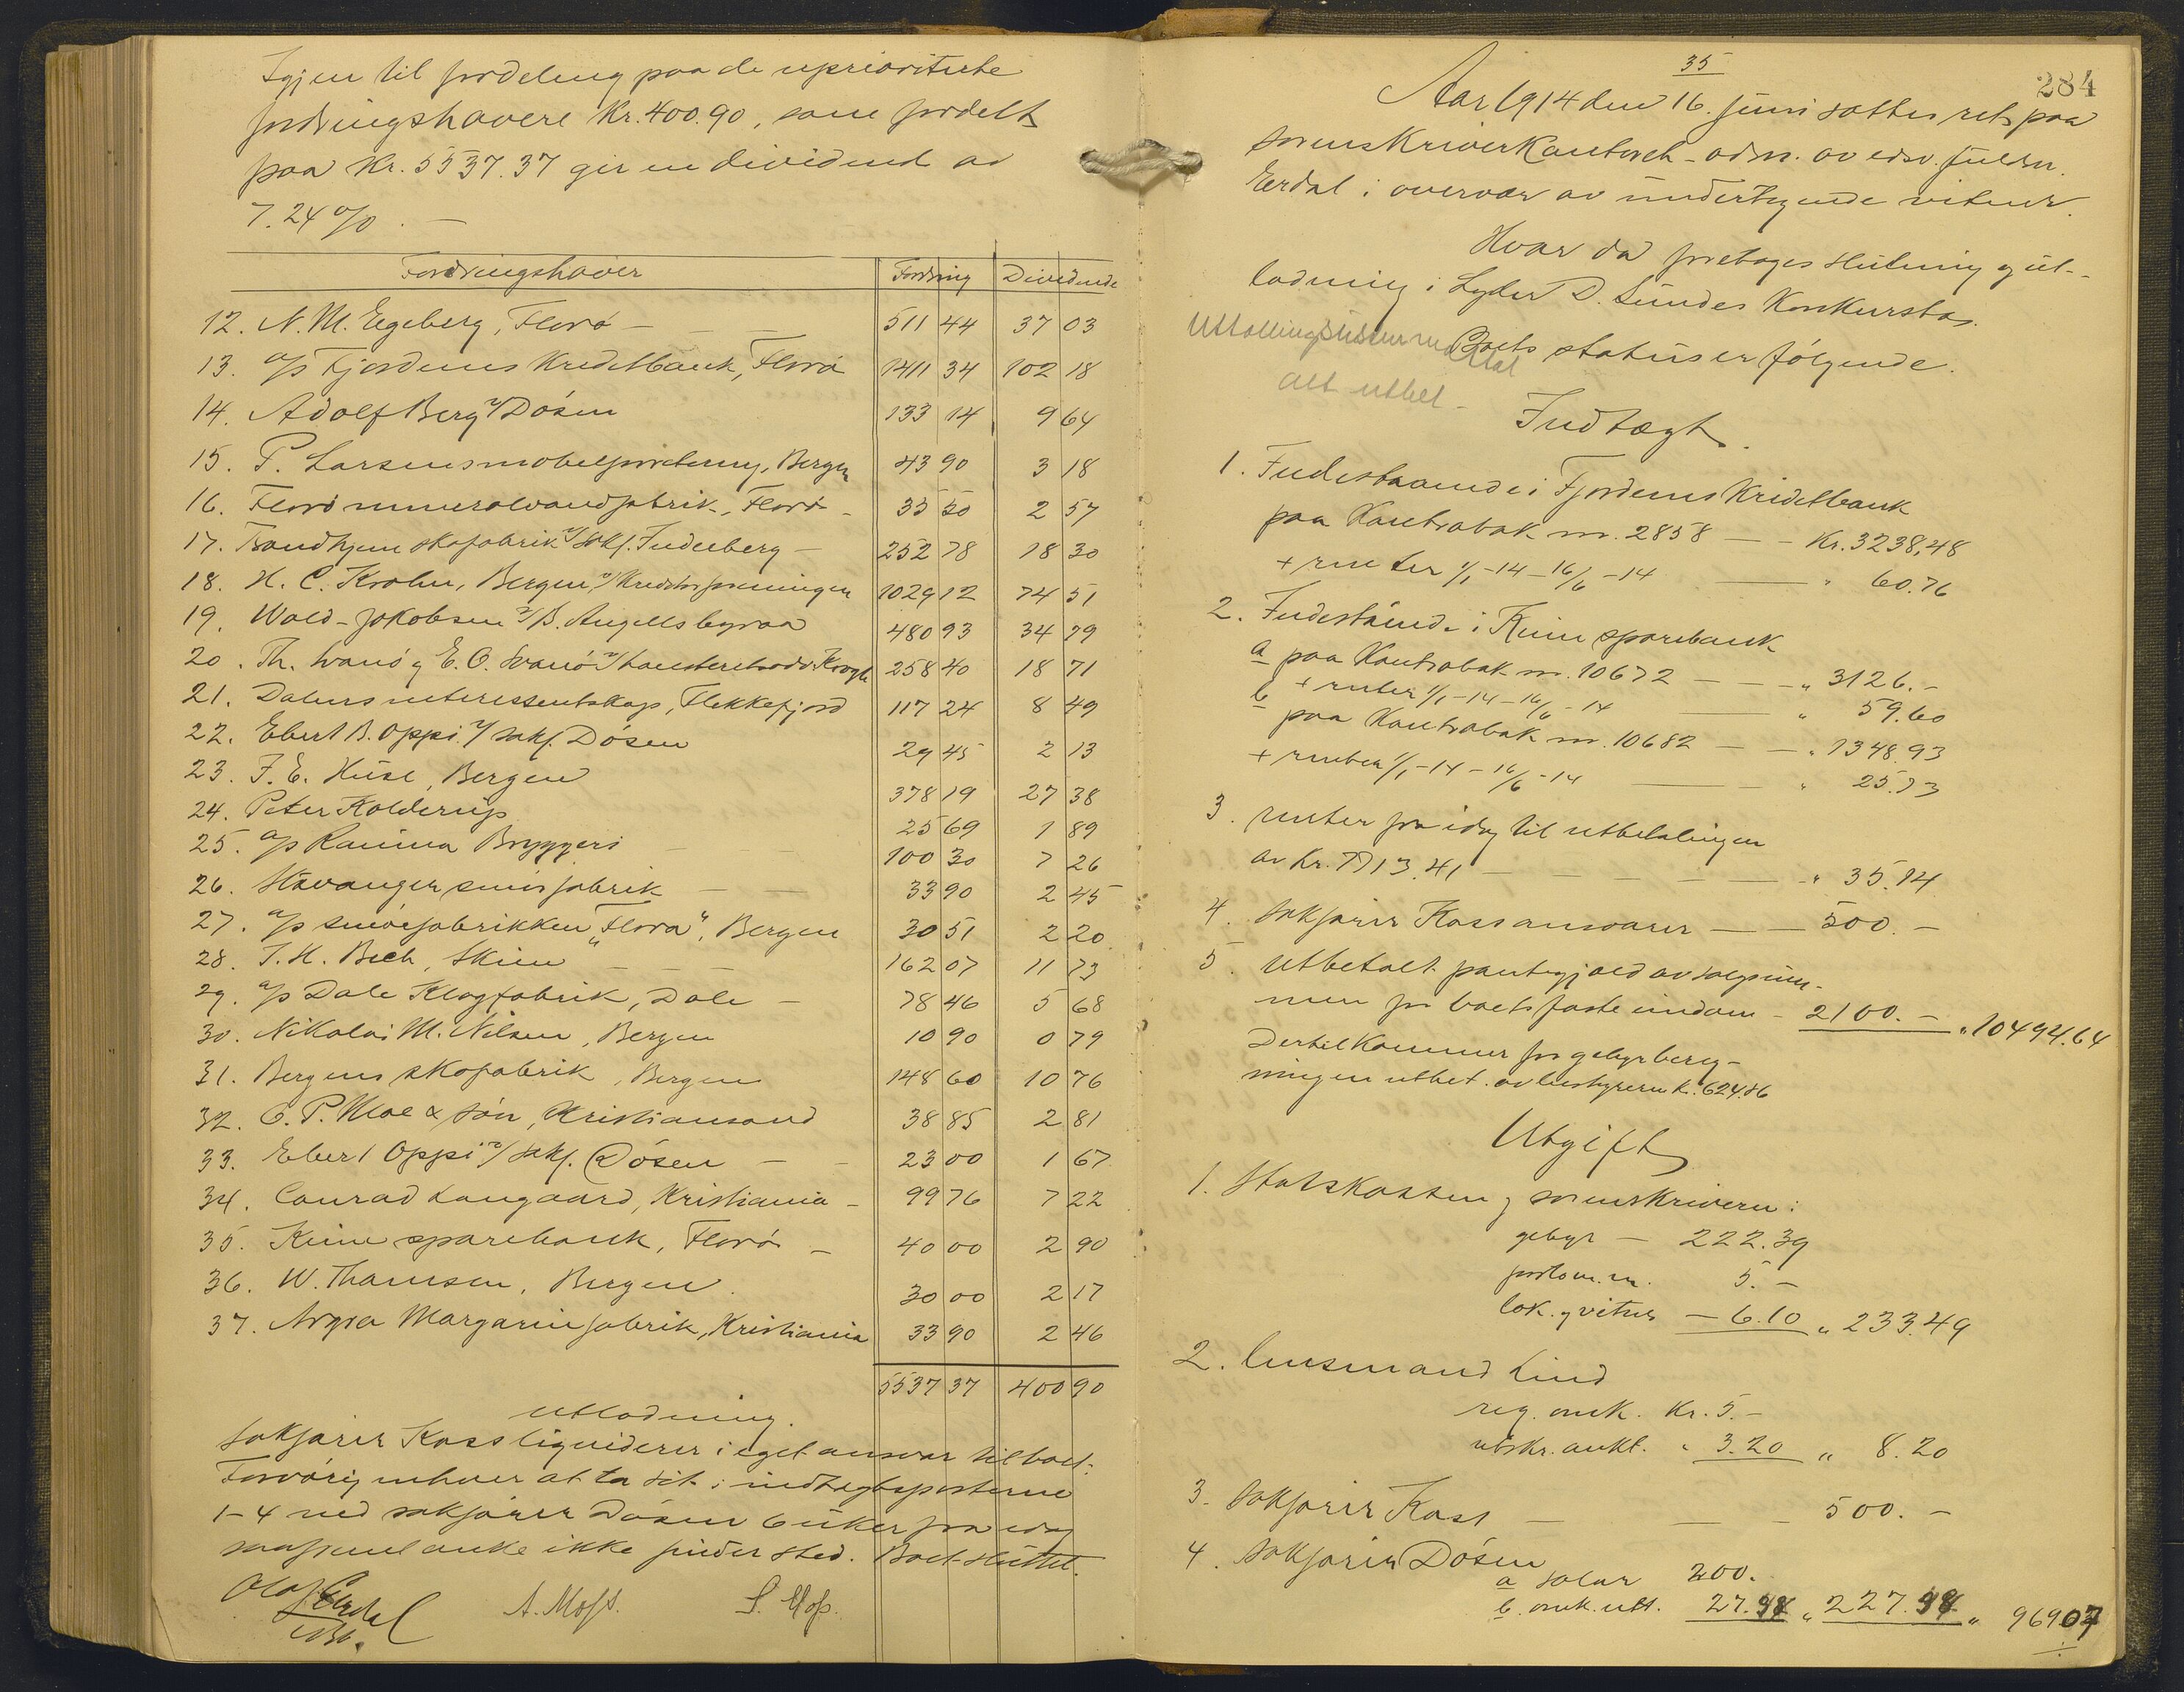 Igjen til fordeling paa de uprioriterte
fordringshavere Kr. 400.90, som fordelt
paa Kr. 5537.37 gir en dividend av
7.24 %. —
Fordringshaver Fordring Dividende
12. N. M. Egeberg, Florø — 511 44 37 03
13. a/s Fjordenes Kreditbank, Florø 1411 34 102 18
14. Adolf Berg v/ Døsen 133 14 9 64
15. P. Larsens møbelforretning, Bergen 43 90 3 18
16. Florø mineralvandfabrik, Florø - 35 50 2 57
17. Trondhjem skofabrik v/ sakf. Indeberg — 252 78 18 30
18. H. C. Krohn, Bergen v/ Kreditorforeningen 1029 12 74 51
19. Wald-Jakobsen v/ B. Angells byraa 480 93 34 79
20. Th. Svanø og E. O. Svanø v/ Krogh 258 40 18 71
21. Dalens interessentskap, Flekkefjord 117 24 8 49
22. Ebert B. Oppi v/ sakf. Døsen 29 45 2 13
23. J. E. Huse, Bergen 378 19 27 38
24. Peter Kolderup 25 69 1 89
25. a/s Bryggeri 100 30 7 26
26. Stavanger fabrik — — 33 90 2 45
27. a/s smørfabrikken "Flora", Bergen 30 51 2 20
28. J. H. Bech, Skien — — — 162 07 11 73
29. a/s Dale Klogfabrik, Dale — 78 46 5 68
30. Nikolai M. Nilsen, Bergen 10 90 0 79
31. Bergens skofabrik, Bergen 148 60 10 76
32. O. P. Moe & Søn, Kristiansand 38 85 2 81
33. Ebert Oppi v/ sakf. Døsen — — 23 00 1 67
34. Conrad Langaard, Kristiania - 99 76 7 22
35. Kinn sparebank, Florø — 40 00 2 90
36. W. Thamsen, Bergen. 30 00 2 17
37. Agra Margarinfabrik, Kristiania 33 90 2 46
5537 37 400 90
Utlodning.
Sakfører Kass liquiderer i eget ansvar til boet.
Forøvrig enhver at ta sit i indtægtsposterne
1-4 ved sakfører Døsen 6 uker fra idag
saafremt anke ikke finder sted. Boet sluttet.
Olaf Eerdal A. Moss. S. Moss.
35
284
Aar 1914 den 16. juni sattes ret paa
sorenskriverkontoret - adm. av edsv. fuldm.
Eerdal i overvær av undertegnede vitner.
Hvor da foretoges slutning og ut-
lodning i Lyder D. Sundes Konkursbo.
Boets status er følgende.
Utlodlingslisten
alt utbet -
Indtægt.
1. Indestaaende i Fjordenes Kreditbank
paa Kontrabok nr. 2858 — - Kr. 3238,48
+ renter 1/1-14 - 16/6 -14 — " 60.76
2. Indestaaende i Kinn sparebank
a paa Kontrabok nr. 10672 — — " 3126.-
+ renter 1/1-14 - 16/6 -14 — " 59.60
b paa Kontrabok nr. 10682 — — " 1348.93
+ renter 1/1-14 - 16/6 -14 — " 25.73
3. renter fra idag til utbetalingen
av Kr. 7713.41 — — — — " 35.14
4. Sakfører Kass ansvarer — — 500. —
5. Utbetalt pantegjæld av salgssum-
men for boets faste eiendom - 2100. — " 10494.64
Dertil kommer for gebyrbereg-
ningen utbet. av bestyreren Kr. 624.86
Utgift
1. Statskassen og sorenskriveren:
gebyr — 222.39
porto m.m. 5. —
lok. og vitner — 6.10 " 233.49
2. Lensmand Lind
reg. omk. Kr. 5. -
utskr. aukt. " 3.20 " 8.20
3. Sakfører Kass — — — 500. —
4. Sakfører Døsen
a salær 200.
b. omk. utl. 27.98 " 227.98 " 969 07